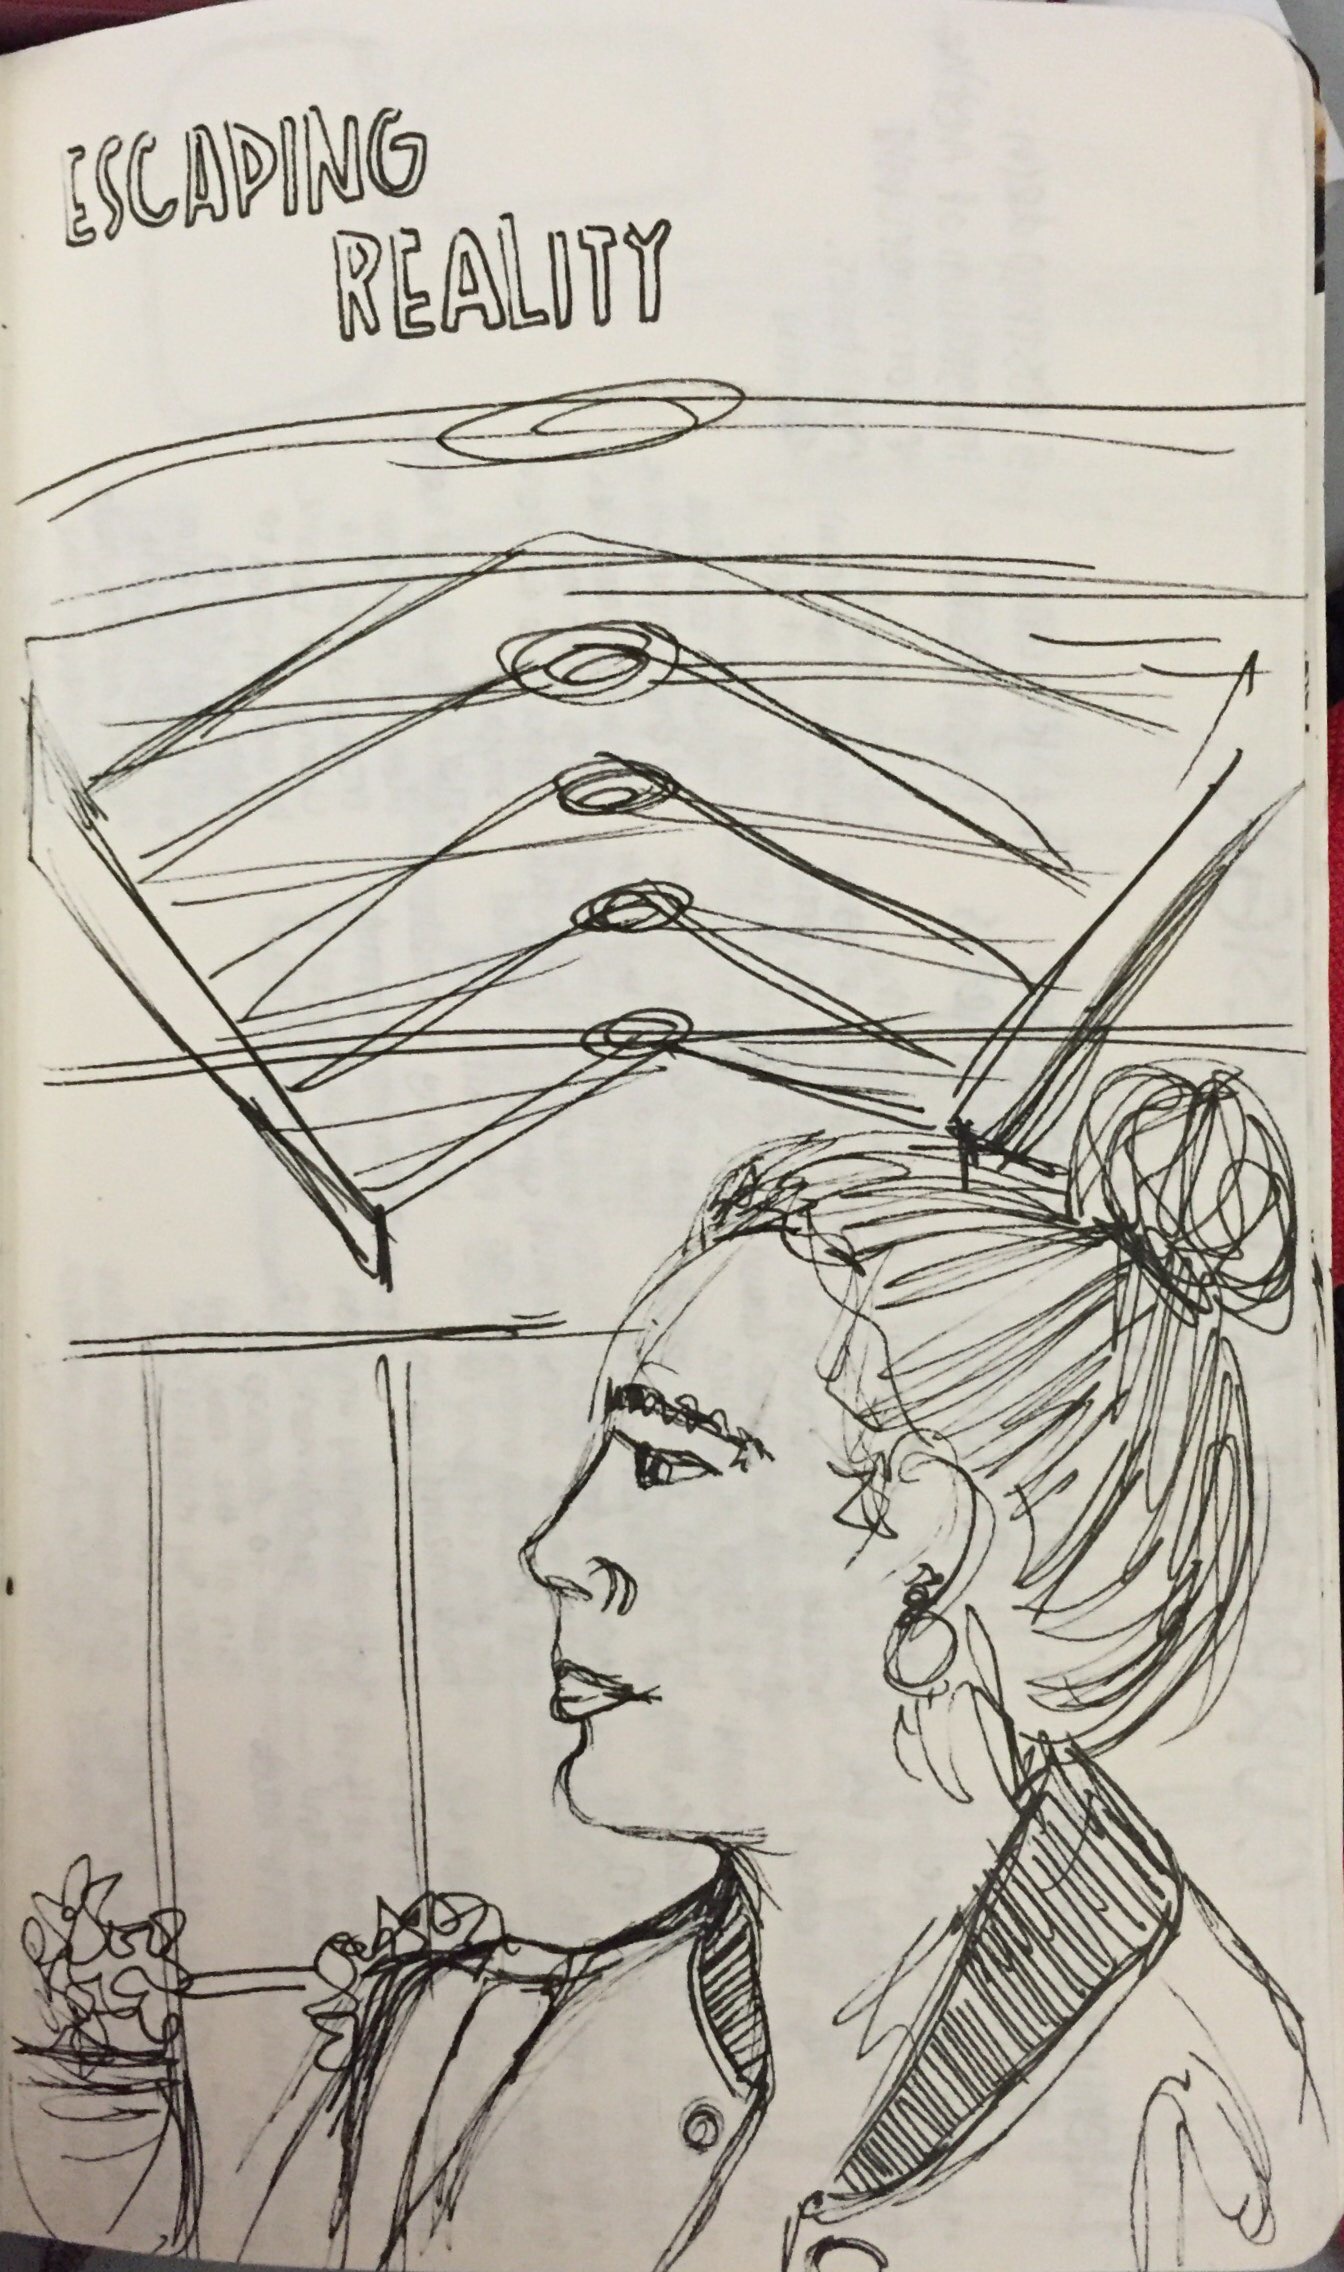 ESCAPING
REALITY